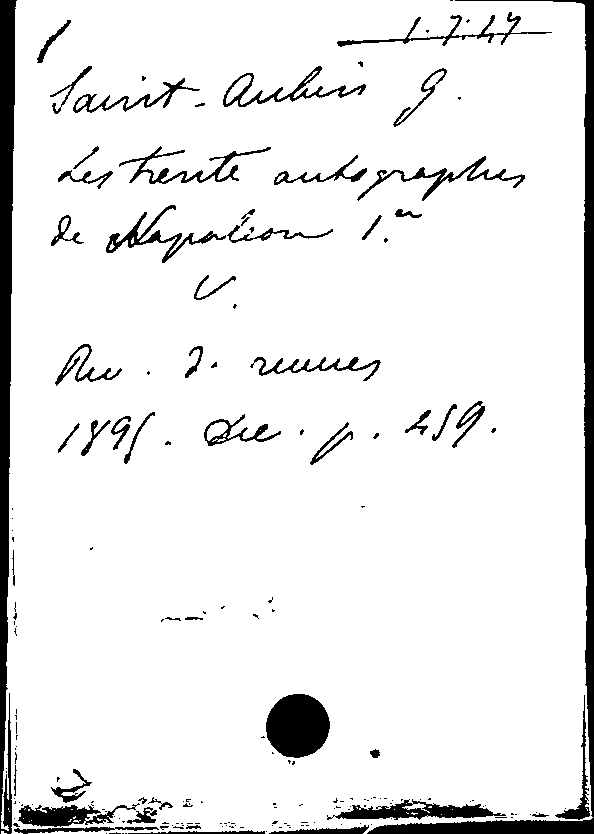 1.7.27
Saint-Aubin G.
Les trente autographes
de Napoléon 1.er
V.
Rev. d. revues
1895. Déc. p. 459.